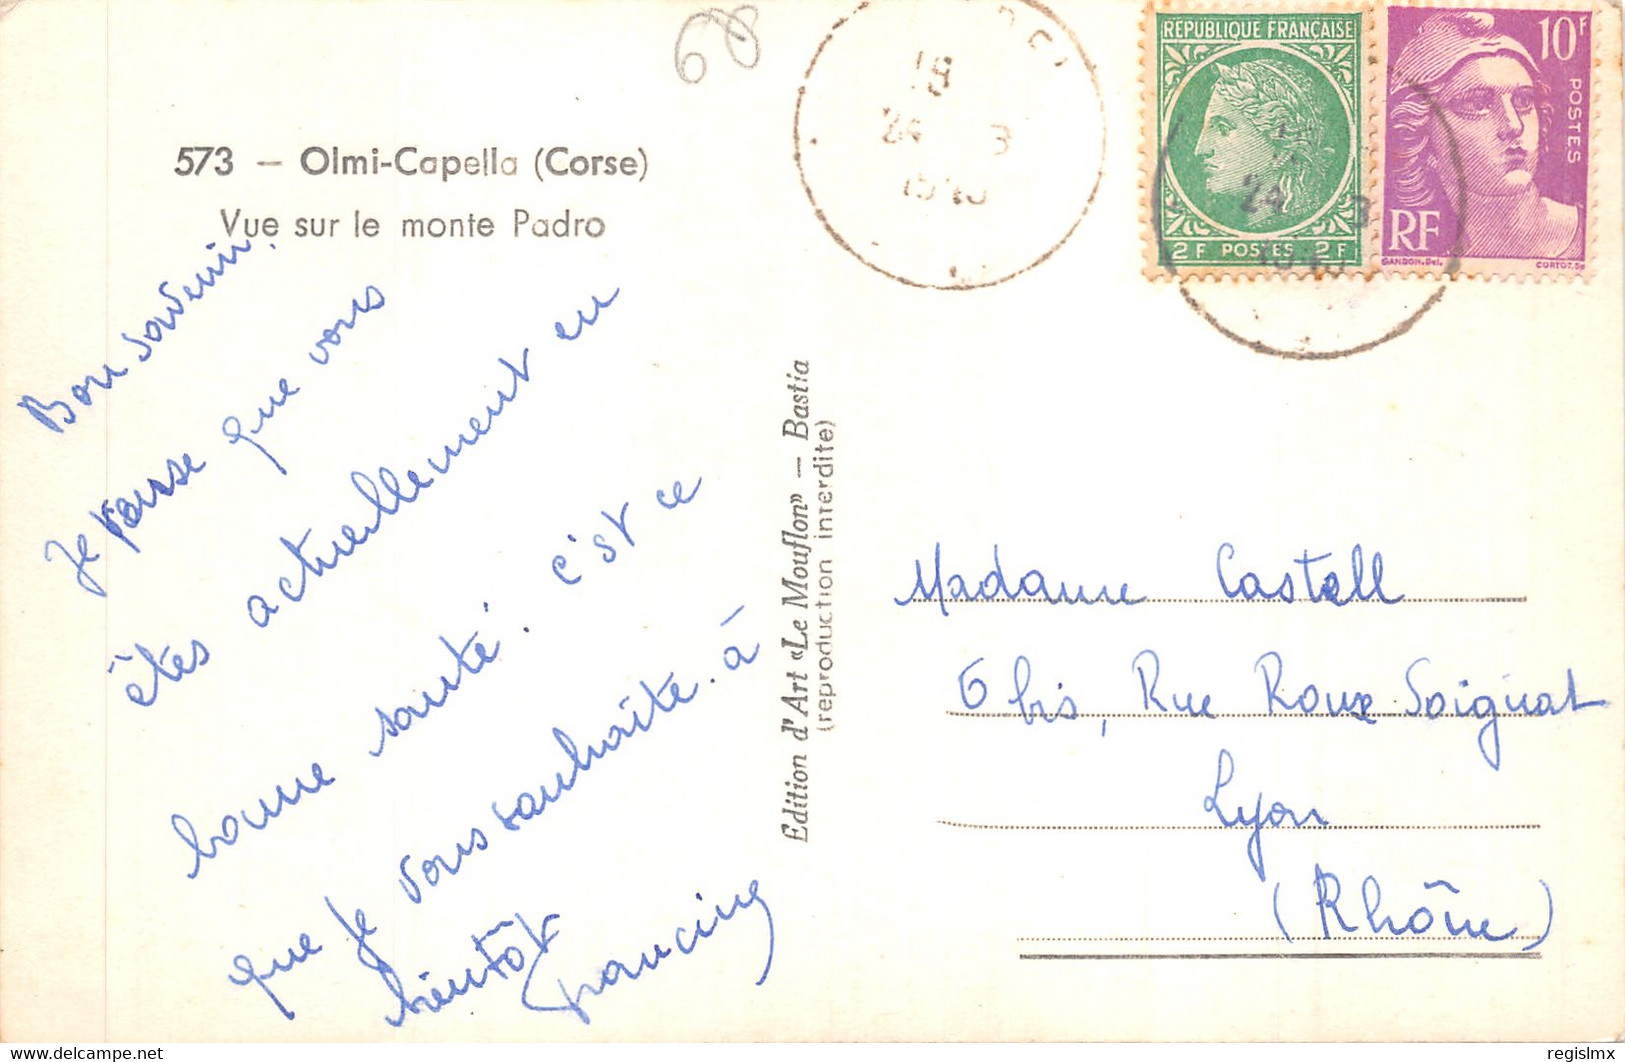 68
573 — Olmi-Capella (Corse)
Vue sur le monte Padro
Bon souvenir.
Je pense que vous
êtes actuellement en
bonne santé. c'est ce
que je vous souhaite. à
bientôt
Francine
Edition d'Art «Le Mouflon» — Bastia
(reproduction interdite)
18
24 3
RÉPUBLIQUE FRANÇAISE
2F POSTES 2F
10F
POSTES
RF
GANDON.Del.
CORTOT.Sc
24 3
Madame Castell
6 bis, Rue Roux Soignat
Lyon
(Rhône)
www.delcampe.net
regislmx